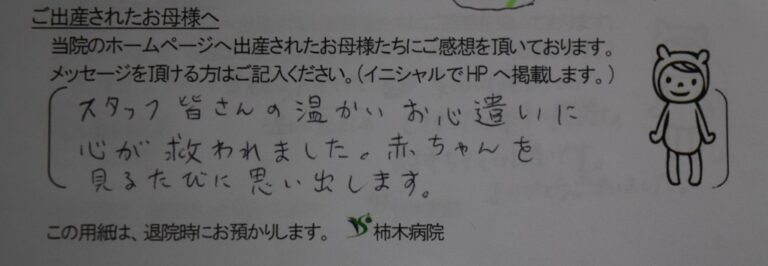 ご出産されたお母様へ
当院のホームページへ出産されたお母様たちにご感想を頂いております。
メッセージを頂ける方はご記入ください。（イニシャルでHPへ掲載します。）
スタッフ皆さんの温かいお心遣いに
心が救われました。赤ちゃんを
見るたびに思い出します。
この用紙は、退院時にお預かりします。 柿木病院